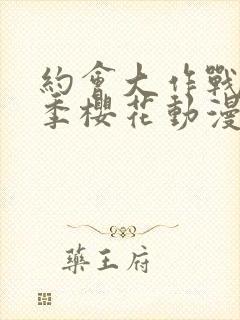 約會大作戰
季櫻花動漫
藥王府